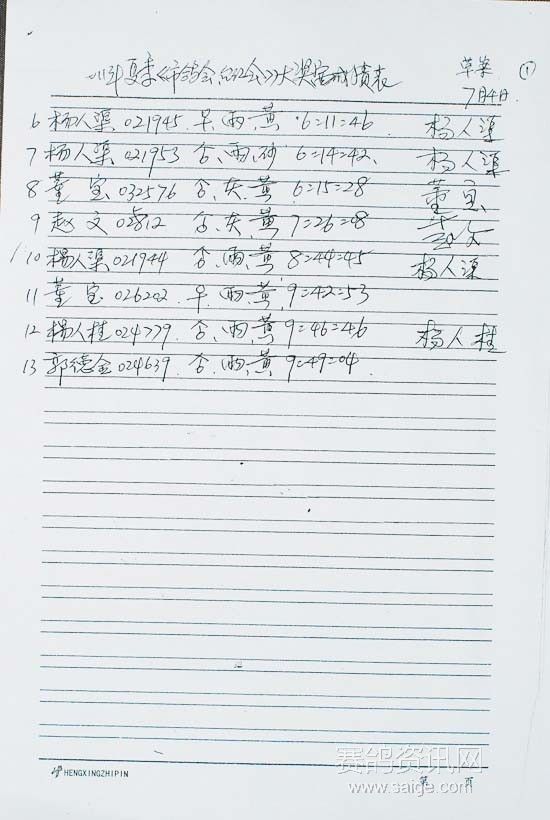 11年夏季《市鸽会纪念》大奖赛成绩表 草案 ①
7月4日
6 杨人渠 021945 早、雨、黄 6=11=46 杨人渠
7 杨人渠 021953 否、雨、砂 6=14=42 杨人渠
8 董宝 032576 否、灰、黄 6=15=28 董宝
9 赵文 否、灰、黄 7=26=08 赵文
10 杨人渠 021944 否、雨、黄 8=44=45 杨人渠
11 董宝 026202 早、雨、黄 9=42=53
12 杨人桂 024779 否、雨、黄 9=46=46 杨人桂
13 郭德金 024639 否、雨、黄 9=49=04
HENGXINGZHIPIN
第 页
赛鸽资讯网
www.saige.com